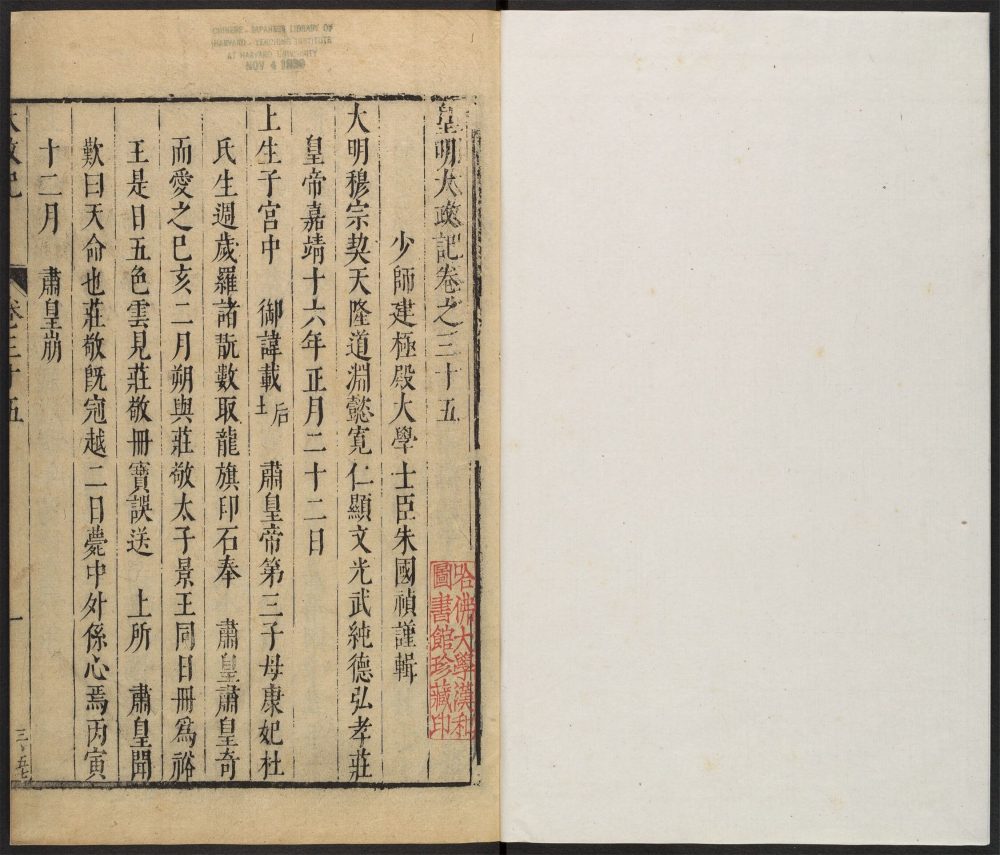 CHINESE-JAPANESE LIBRARY OF
HARVARD-YENCHING INSTITUTE
AT HARVARD UNIVERSITY
NOV 4 1930
皇明大政記卷之三十五
少師建極殿大學士臣朱國禎謹輯
大明穆宗契天隆道淵懿寬仁顯文光武純德弘孝莊
皇帝嘉靖十六年正月二十二日
上生子宮中 御諱載 后土 肅皇帝第三子母康妃杜
氏生週歲羅諸翫數取龍旗印石奉 肅皇肅皇奇
而愛之巳亥二月朔與莊敬太子景王同日冊爲裕
王是日五色雲見莊敬冊寶誤送 上所 肅皇聞
歎曰天命也莊敬旣㓂越二日薨中外係心焉丙寅
十二月 肅皇崩
大政記 卷三十五 一
哈佛大學漢和
圖書館珍藏印